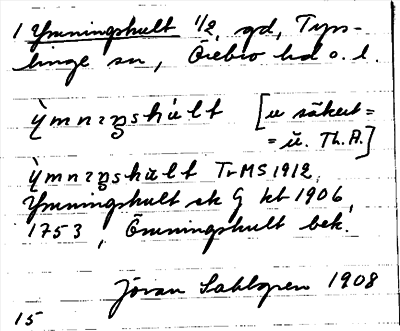 1 Ymningshult 1/2, gd, Tyss-
linge sn, Örebro hd o. l.
ỳmnıŋshu̇lt [u säkert =
= ŭ. Th.A.]
ỳmnıŋshŭlt Tr MS 1912,
Ymningshult sk G kb 1906,
1753, Ömningshult bek.
Jöran Sahlgren 1908
15